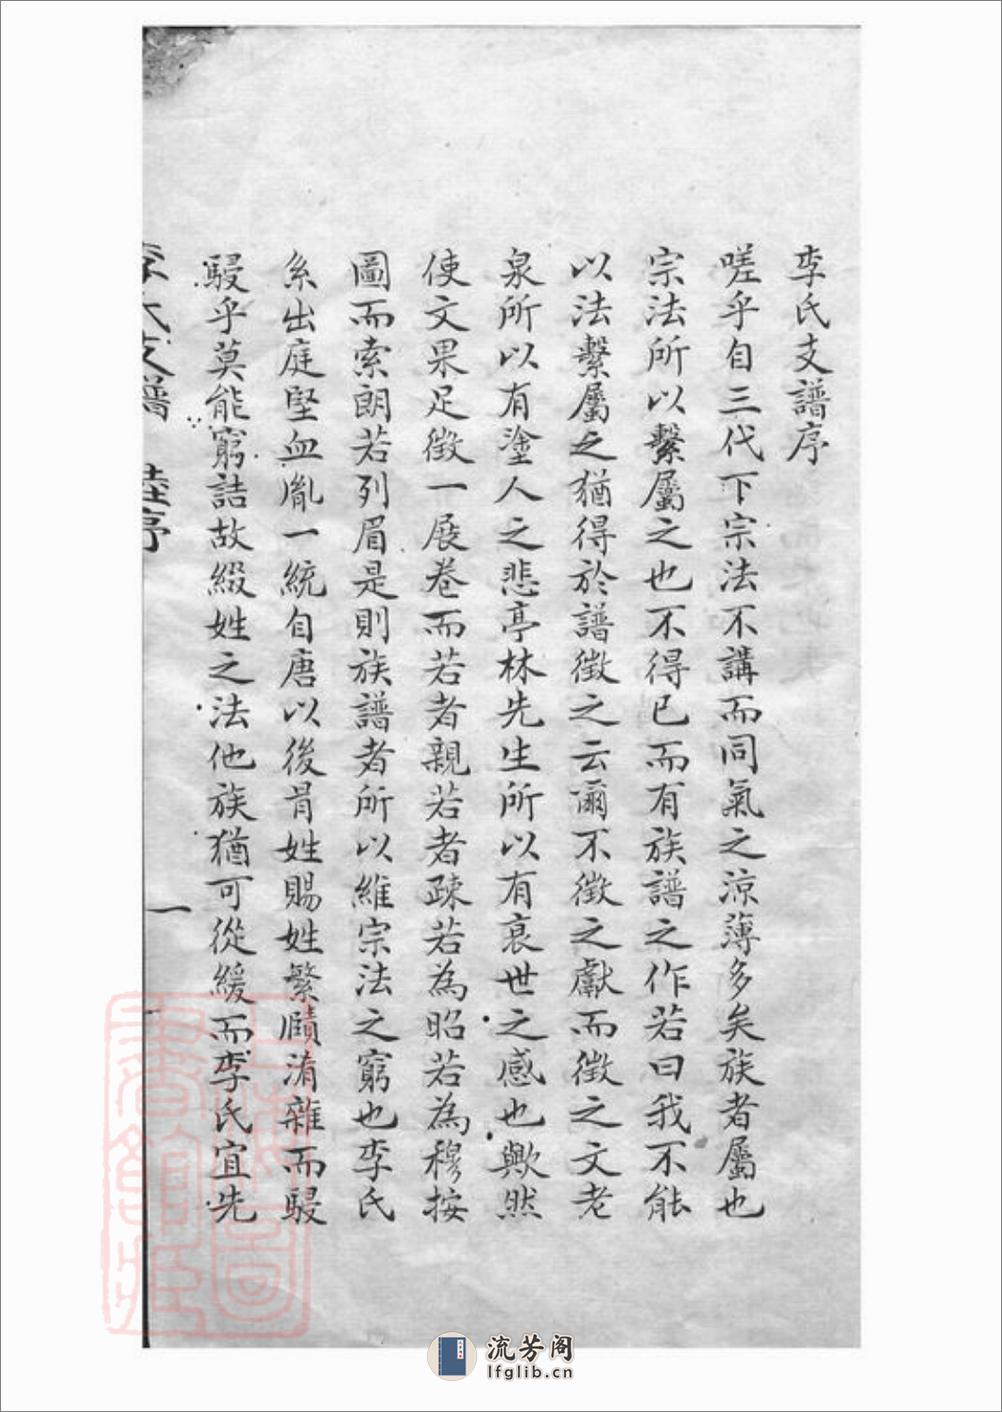 李氏支譜序
嗟乎自三代下宗法不講而同氣之涼薄多矣族者屬也
宗法所以繫屬之也不得已而有族譜之作若曰我不能
以法繫屬之猶得於譜徵之云爾不徵之獻而徵之文老
泉所以有塗人之悲亭林先生所以有衰世之感也歟然
使文果足徵一展卷而若者親若者疎若為昭若為穆按
圖而索朗若列眉是則族譜者所以維宗法之窮也李氏
系出庭堅血胤一統自唐以後冐姓賜姓繁賾淆雜而駸
駸乎莫能窮詰故綴姓之法他族猶可從緩而李氏宜先
李氏支譜 陸序
一
上海圖書館藏
流芳阁
lfglib.cn